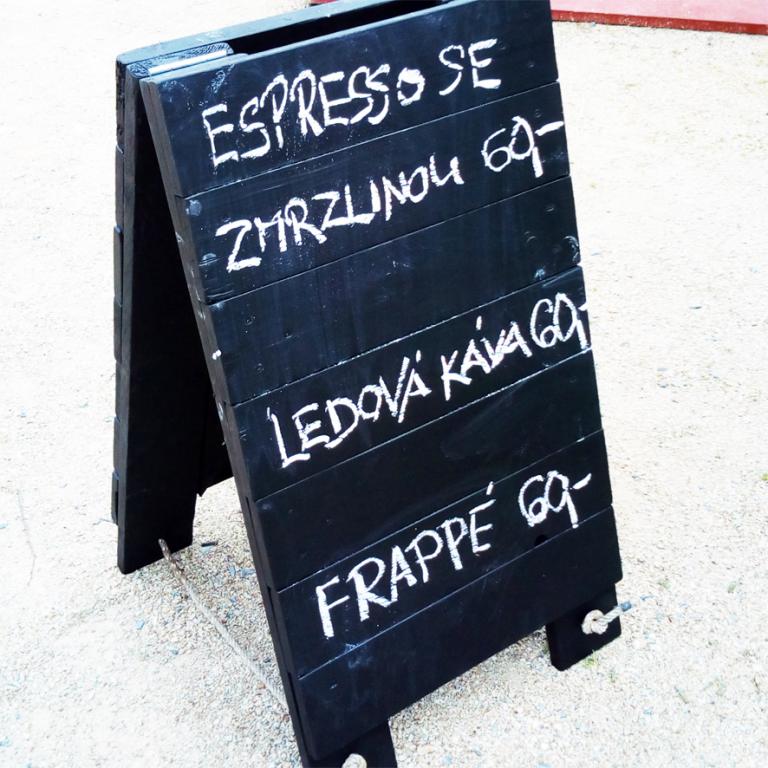 ESPRESSO SE
ZMRZLINOU 60,-
LEDOVÁ KÁVA 60,-
FRAPPÉ 60,-